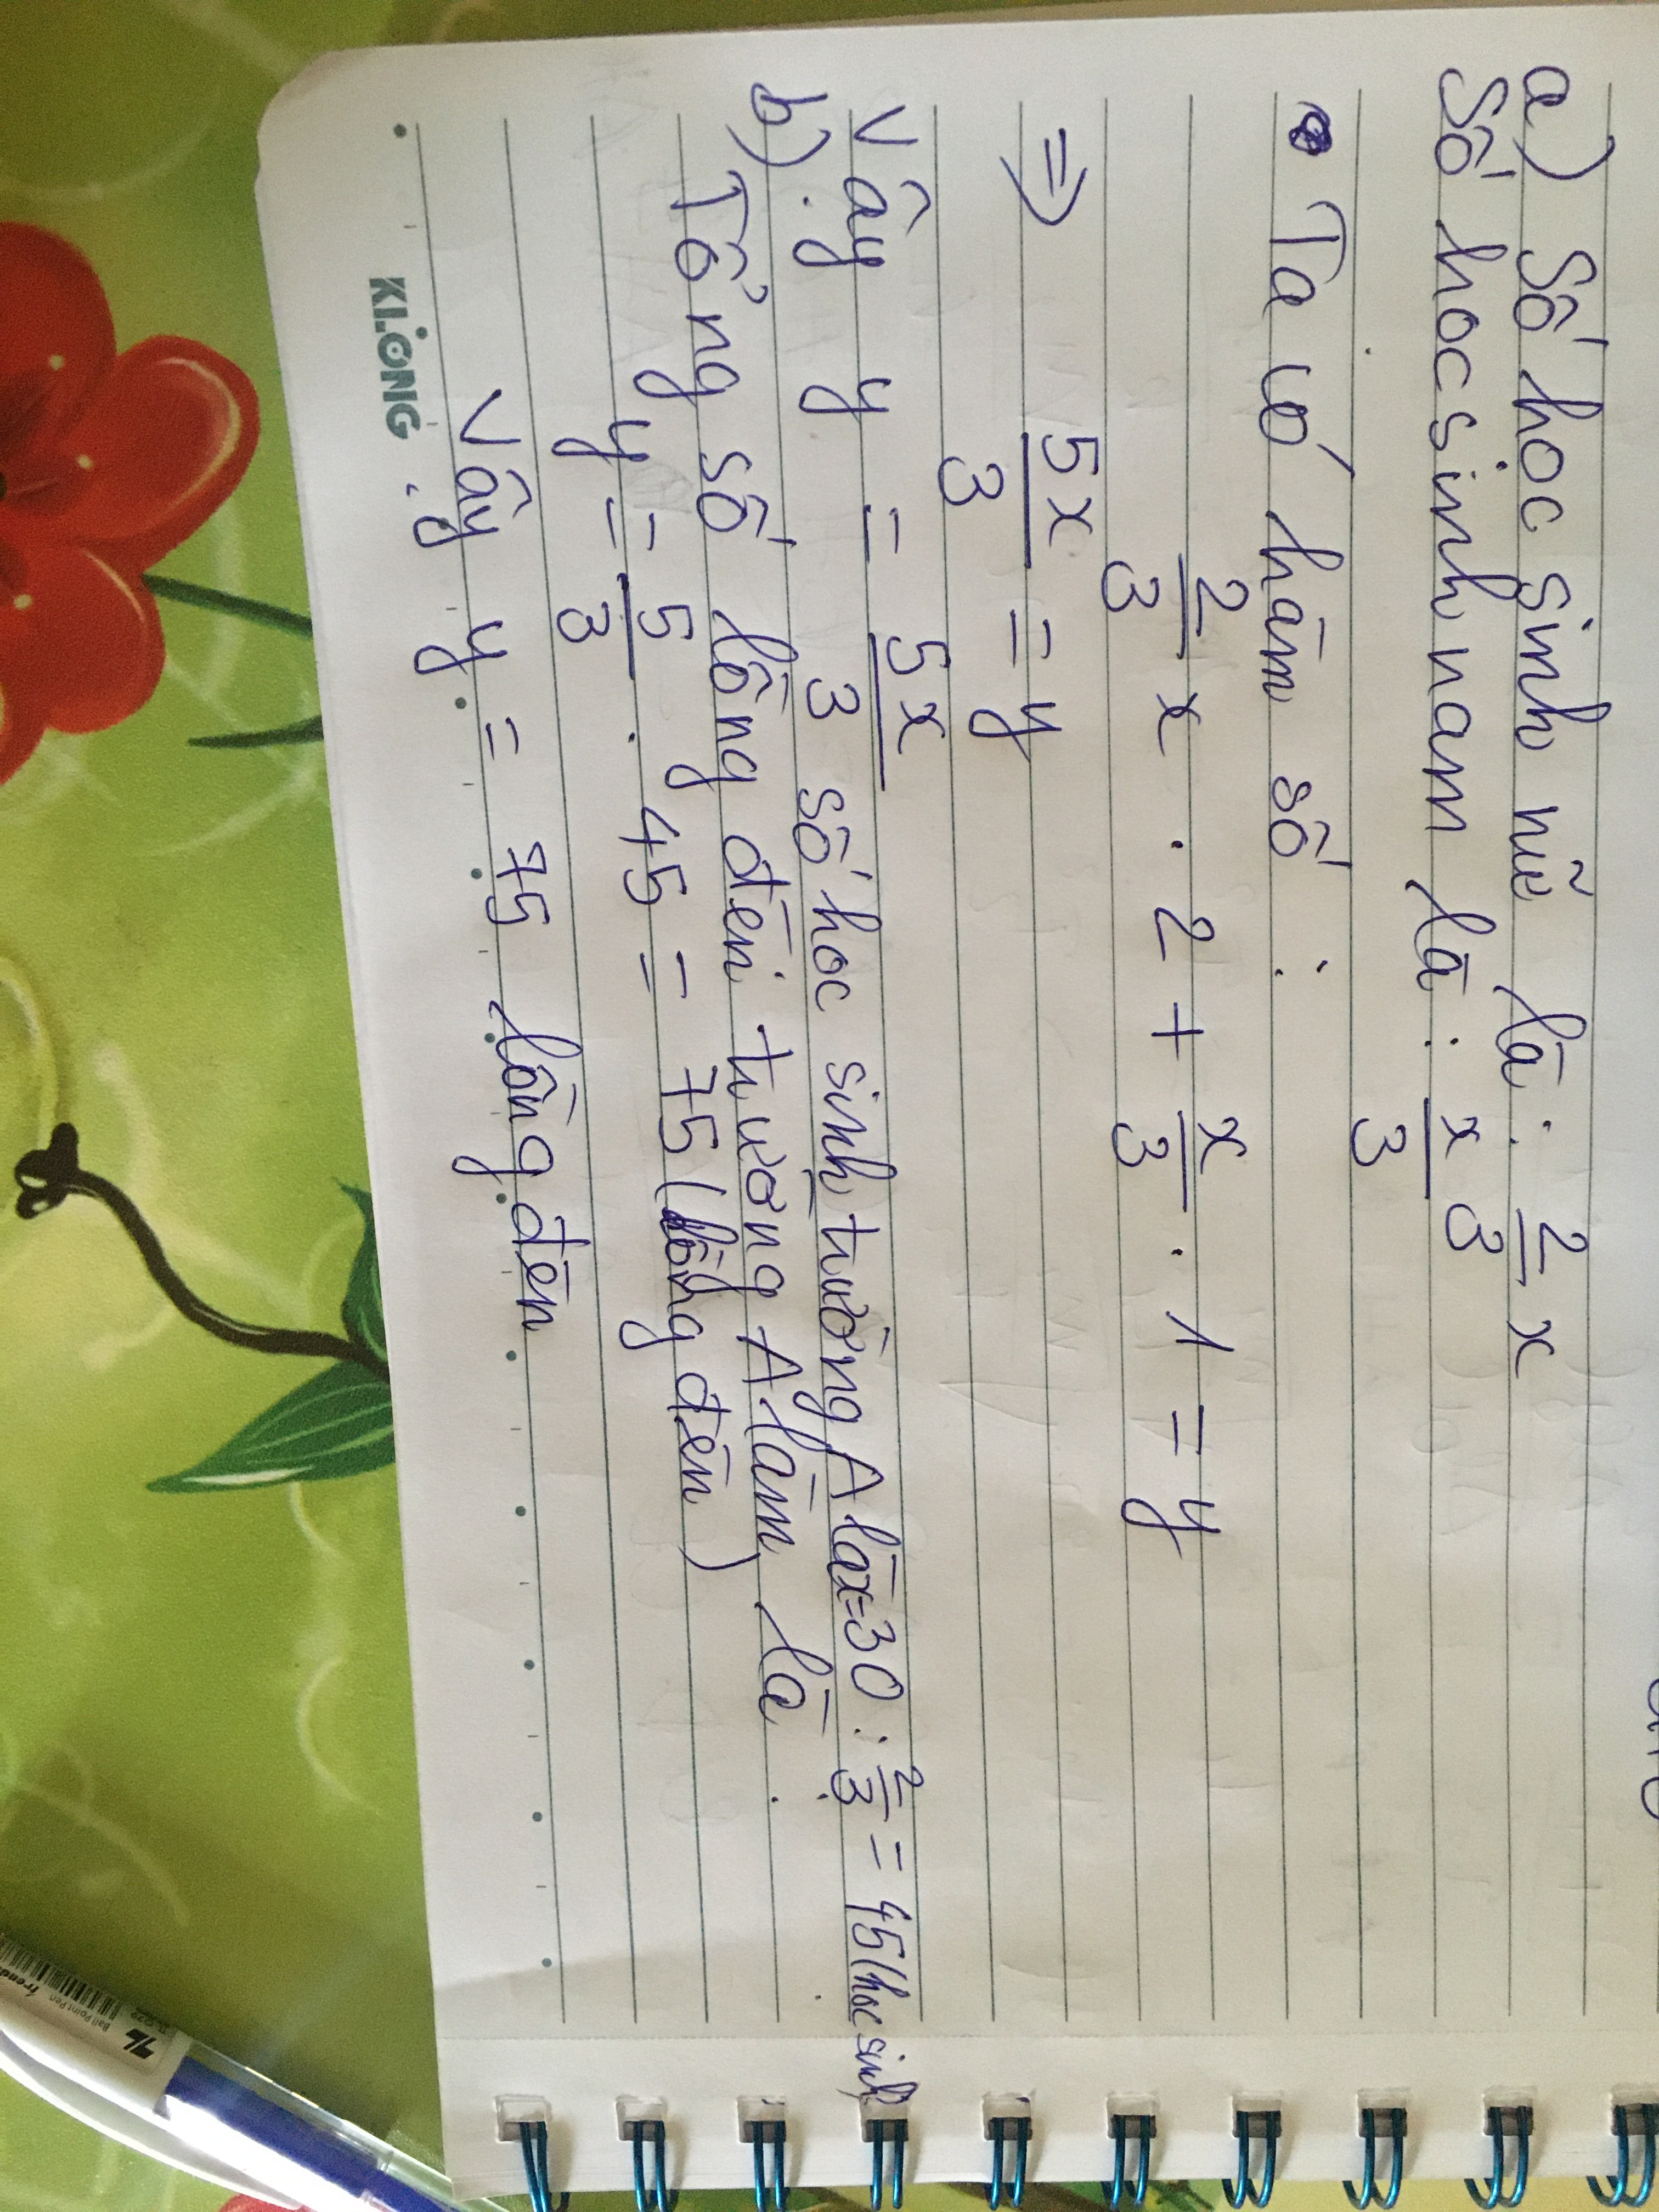 a) Số học sinh nữ là: 2/3 x
Số học sinh nam là: x/3
• Ta có hàm số:
2/3 x . 2 + x/3 . 1 = y
⇒ 5x/3 = y
Vậy y = 5x/3
b). số học sinh trường A là x=30 : 2/3 = 45 (học sinh
Tổng số lồng đèn trường A làm là:
y = 5/3 . 45 = 75 (lồng đèn)
Vậy y = 75 lồng đèn
KLONG